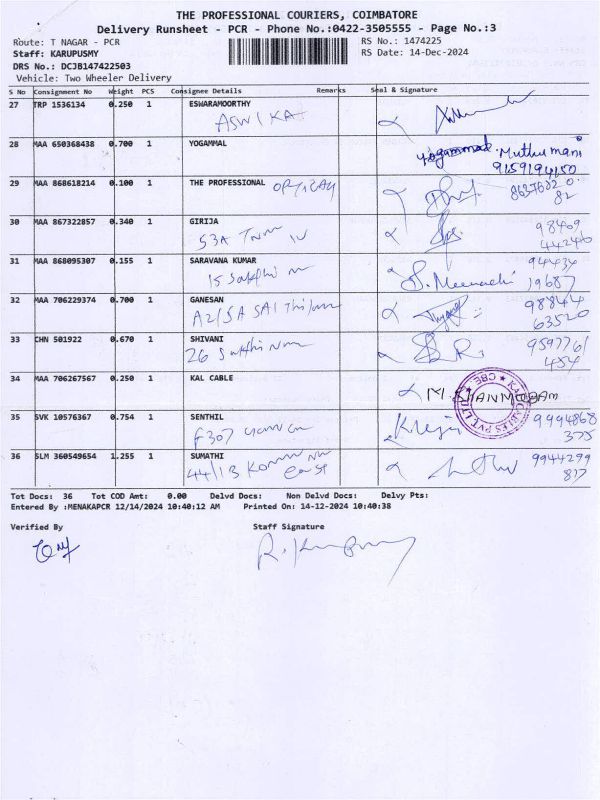 THE PROFESSIONAL COURIERS, COIMBATORE
Delivery Runsheet - PCR - Phone No.:0422-3505555 - Page No.:3
Route: T NAGAR - PCR
RS No.: 1474225
Staff: KARUPUSMY
RS Date: 14-Dec-2024
DRS No.: DCJB147422503
Vehicle: Two Wheeler Delivery
S No Consignment No Weight PCS Consignee Details Remarks Seal & Signature
27 TRP 1536134 0.250 1 ESWARAMOORTHY
ASWIKA
28 MAA 650368438 0.700 1 YOGAMMAL
Yogammal. Muthumani
9159194150
29 MAA 868618214 0.100 1 THE PROFESSIONAL OPTICAL
82
30 MAA 867322857 0.340 1 GIRIJA
53A
98409
44246
31 MAA 868095307 0.155 1 SARAVANA KUMAR
15 Sakthi
S. Meenachi
94434
19687
32 MAA 706229374 0.700 1 GANESAN
A2/5A SAI
98844
63520
33 CHN 501922 0.670 1 SHIVANI
26 Sakthi
959776/
454
34 MAA 706267567 0.250 1 KAL CABLE
M. SHANMUGAM
KAL CABLES PVT. LTD. ★ CBE ★
35 SVK 10576367 0.754 1 SENTHIL
F307
9994868
375
36 SLM 360549654 1.255 1 SUMATHI
44/13
east
9944299
817
Tot Docs: 36 Tot COD Amt: 0.00 Delvd Docs: Non Delvd Docs: Delvy Pts:
Entered By :MENAKAPCR 12/14/2024 10:40:12 AM Printed On: 14-12-2024 10:40:38
Verified By Staff Signature